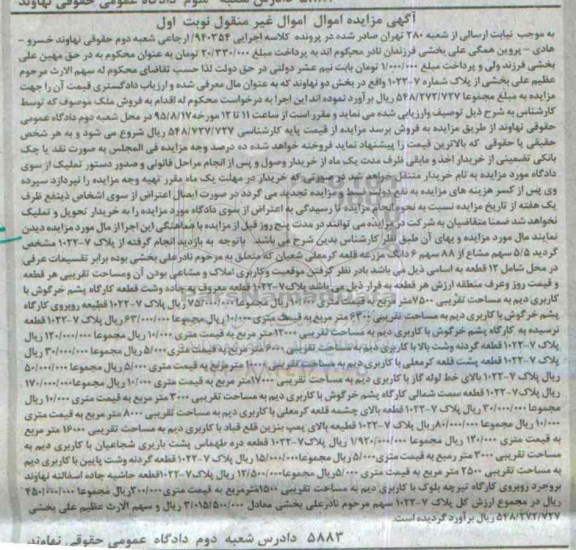 آگهی مزایده اموال اموال غیر منقول نوبت اول
به موجب نیابت ارسالی از شعبه ۲۸۰ تهران صادر شده در پرونده کلاسه اجرایی ۹۴۰۳۵۴/ ارجاعی شعبه دوم حقوقی نهاوند خسرو –
هادی – پروین همگی علی بخشی فرزندان نادر محکوم اند به پرداخت مبلغ ۲۰/۳۳۰/۰۰۰ تومان به عنوان محکوم به در حق مهین علی
بخشی فرزند ولی و پرداخت مبلغ ۱/۰۰۰/۰۰۰ تومان بابت نیم عشر دولتی در حق دولت لذا حسب تقاضای محکوم له سهم الارث مرحوم
عظیم علی بخشی از پلاک شماره ۷-۱۰۲۲ واقع در بخش دو نهاوند که به عنوان مال معرفی شده و ارزیاب دادگستری قیمت آن را جهت
مزایده به مبلغ مجموعا ۵۴۸/۲۷۲/۷۲۷ ریال برآورد نموده اند این اجرا به درخواست محکوم له اقدام به فروش ملک موصوف که توسط
کارشناس به شرح ذیل توصیف وارزیابی شده می نماید و مقرر است از ساعت ۱۱ تا ۱۲ مورخه ۹۵/۸/۱۷ در محل شعبه دوم دادگاه عمومی
حقوقی نهاوند از طریق مزایده به فروش برسد مزایده از قیمت پایه کارشناسی ۵۴۸/۷۲۷/۷۲۷ ریال شروع می شود و به هر شخص
حقیقی یا حقوقی که بالاترین قیمت را پیشنهاد نماید فروخته خواهد شده ده درصد وجه مزایده فی المجلس به صورت نقد یا چک
بانکی تضمینی از خریدار اخذ و مابقی ظرف مدت یک ماه از خریدار وصول و پس از انجام مراحل قانونی و صدور دستور تملیک از سوی
دادگاه مورد مزایده به نام خریدار منتقل خواهد شد در صورتی که خریدار در مهلت یک ماه مقرر تهیه وجه مزایده را نپردازد سپرده
وی پس از کسر هزینه های مزایده به نفع دولت ضبط و مزایده تجدید می گردد در صورت ایصال اعتراض از سوی اشخاص ذینفع ظرف
یک هفته از تاریخ مزایده نسبت به نحوه انجام مزایده تا رسیدگی به اعتراض از سوی دادگاه مورد مزایده را به خریدار تحویل و تملیک
نخواهد شد ضمنا متقاضیان به شرکت در مزایده می توانند در مدت پنج روز قبل از مزایده با هماهنگی این اجرا از مال مورد مزایده دیدن
نمایند مال مورد مزایده و بهای آن طبق نظر کارشناس بدین شرح می باشد. باتوجه به بازدید انجام گرفته از پلاک ۷-۱۰۲۲ مشخص
گردید ۵/۵ سهم مشاع از ۸۸ سهم ۶ دانگ مزرعه قلعه کرمعلی شعبان که متعلق به مرحوم نادر علی بخشی بوده برابر تقسیمات عرفی
در محل شامل ۱۲ قطعه به اسامی ذیل می باشد بادر نظر گرفتن موقعیت وکاربری املاک و مشاعی بودن آن ومساحت تقریبی هر قطعه
و قیمت روز وعرف منطقه ارزش هر قطعه به قرار ذیل می باشد پلاک ۷-۱۰۲۲ قطعه معروف به جاده وشت قطعه کارگاه پشم خرگوش با
کاربری دیم به مساحت تقریبی ۷۵۰۰ متر مربع به قیمت متری ریال مجموعا ۷۵/۰۰۰/۰۰۰ ریال پلاک ۷-۱۰۲۲ قطعه روبروی کارگاه
پشم خرگوش با کاربری دیم به مساحت تقریبی ۶۳۰۰ متر مربع به قیمت متری ۱۰/۰۰۰ ریال مجموعا ۶۳/۰۰۰/۰۰۰ ریال پلاک ۷-۱۰۲۲ قطعه
نرسیده به کارگاه پشم خرگوش با کاربری دیم به مساحت تقریبی ۱۲۰۰۰ متر مربع به قیمت متری ۱۰/۰۰۰ ریال مجموعا ۱۲۰/۰۰۰/۰۰۰ ریال
پلاک ۷-۱۰۲۲ قطعه گردنه وشت بالا با کاربری دیم به مساحت تقریبی ۶۰۰۰ متر مربع به قیمت متری ۵/۰۰۰ ریال مجموعا ۳۰/۰۰۰/۰۰۰ ریال
پلاک ۷-۱۰۲۲ قطعه پشت قلعه کرمعلی با کاربری دیم به مساحت تقریبی ۱۰۰۰۰ متر مربع به قیمت متری ۵/۰۰۰ ریال مجموعا ۵۰/۰۰۰/۰۰۰
ریال پلاک ۷-۱۰۲۲ بالای خط لوله گاز با کاربری دیم به مساحت تقریبی ۱۷۰۰۰ متر مربع به قیمت متری ۱۰/۰۰۰ ریال مجموعا ۱۷۰/۰۰۰/۰۰۰
ریال پلاک ۷-۱۰۲۲ قطعه سمت شمالی کارگاه پشم خرگوش با کاربری دیم به مساحت تقریبی ۳۰۰۰ متر مربع به قیمت متری ۱۰/۰۰۰ ریال
مجموعا ۳۰/۰۰۰/۰۰۰ ریال پلاک ۷-۱۰۲۲ قطعه بالای چشمه قلعه کرمعلی با کاربری دیم به مساحت تقریبی ۸۰۰۰ متر مربع به قیمت متری
۱۰/۰۰۰ ریال مجموعا ۸۰/۰۰۰/۰۰۰ ریال پلاک ۷-۱۰۲۲ قطعه بالای پمپ بنزین قلع قباد با کاربری دیم به مساحت تقریبی ۱۶۰۰۰ متر مربع
به قیمت متری ۱۲۰/۰۰۰ ریال مجموعا ۱/۹۲۰/۰۰۰/۰۰۰ ریال پلاک ۷-۱۰۲۲ قطعه دره طهماس پشت باربری شجاعیان با کاربری دیم به
مساحت تقریبی ۳۰۰۰ متر مربع به قیمت متری ۵/۰۰۰ ریال مجموعا ۱۵/۰۰۰/۰۰۰ ریال پلاک ۷-۱۰۲۲ قطعه گردنه وشت پایین با کاربری دیم
به مساحت تقریبی ۲۵۰۰ متر مربع به قیمت متری ۵/۰۰۰ ریال مجموعا ۱۲/۵۰۰/۰۰۰ ریال پلاک ۷-۱۰۲۲ قطعه حاشیه جاده اسفالته نهاوند
بروجرد روبروی کارگاه تیرچه بلوک با کاربری دیم به مساحت تقریبی ۱۵۰۰ مترمربع به قیمت متری ۳۰۰/۰۰۰ ریال مجموعا ۴۵۰/۰۰۰/۰۰۰
ریال در مجموع ارزش کل پلاک ۷-۱۰۲۲ سهم مرحوم نادر علی بخشی معادل ۳/۰۱۵/۵۰۰/۰۰۰ ریال و سهم الارث عظیم علی بخشی
۵۴۸/۲۷۲/۷۲۷ ریال برآورد گردیده است.
۵۸۸۳ دادرس شعبه دوم دادگاه عمومی حقوقی نهاوند